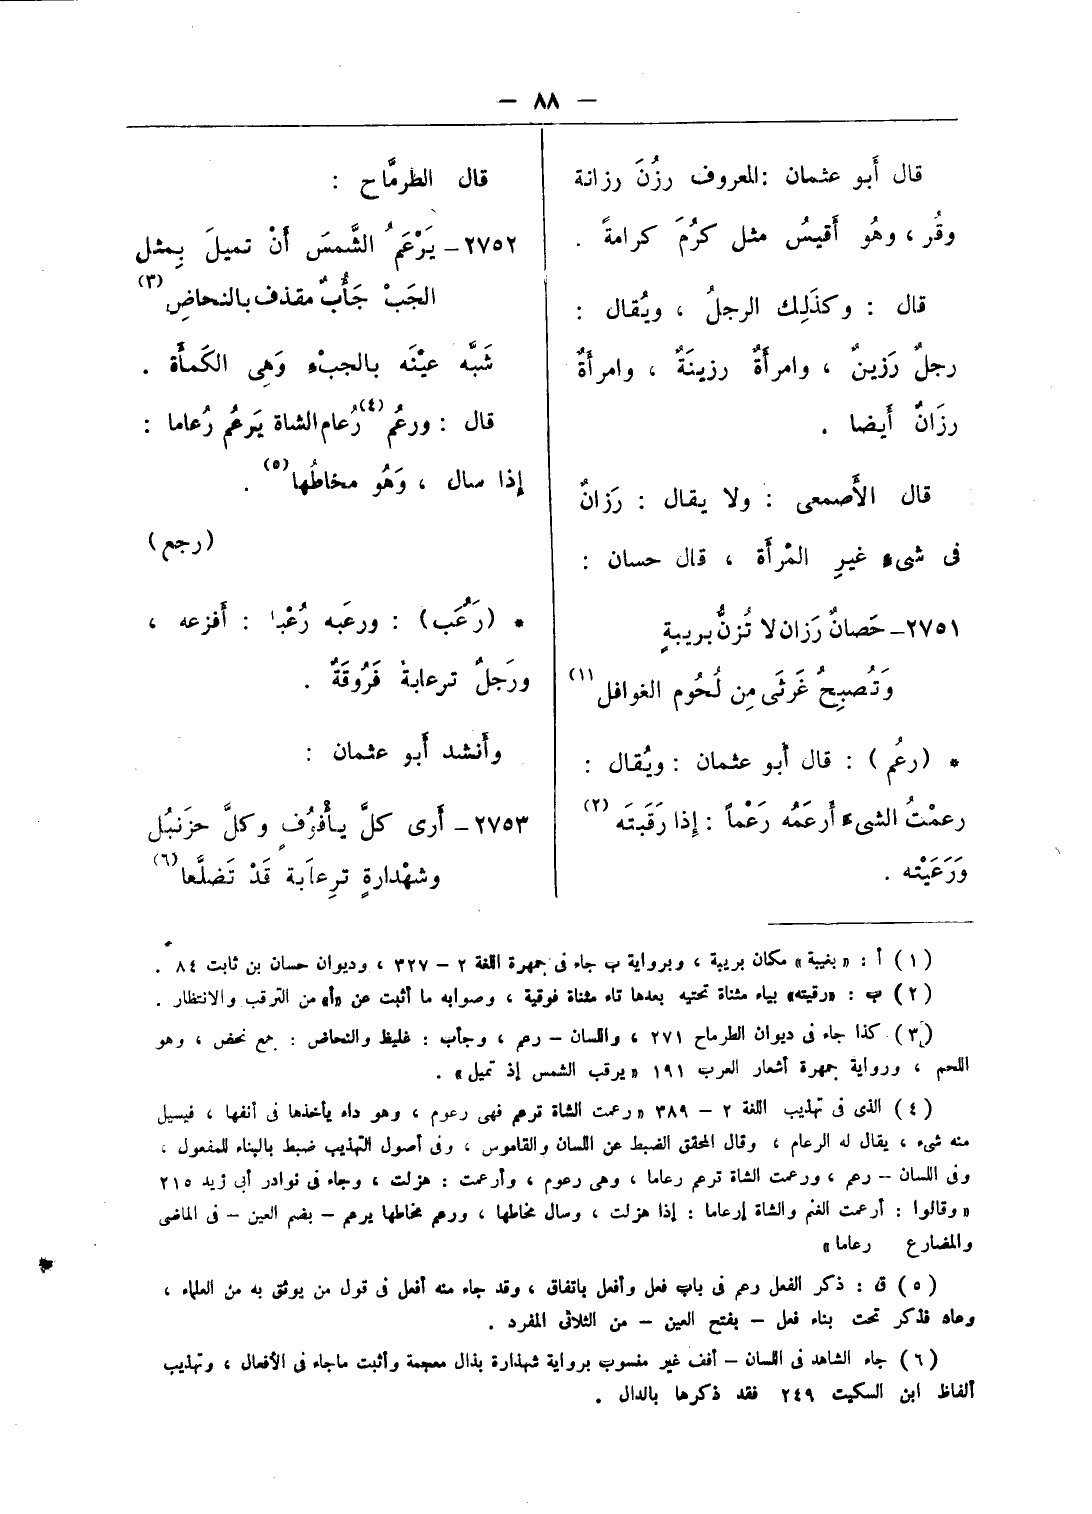 — ٨٨ —
قال أَبو عثمان : المعروف رزُنَ رزانة
وقُر ، وهُو أَقيسُ مثل كرُمَ كرامةً .
قال : وكذَلِك الرجلُ ، ويُقال :
رجلٌ رَزينٌ ، وامرأَةٌ رزينَةٌ ، وامرأَةٌ
رزَانٌ أَيضا .
قال الأَصمعى : ولا يقال : رَزانٌ
فى شىء غيرِ المْرأَة ، قال حسان :
٢٧٥١ – حَصانٌ رَزان لا تُزنُّ بريبةٍ
وَتُصبِحُ غَرثَى مِن لُحُوم الغوافل (١)
* (رعُم) : قال أَبو عثمان : ويُقال :
رعمْتُ الشىءَ أَرعَمُه رَعْماً : إِذا رَقَبتَه (٢)
وَرَعَيْته .
قال الطرمَّاح :
٢٧٥٢ – يَرْعَمُ الشَّمسَ أَنْ تميلَ بِمثل
الجَبْ جَأْبٌ مقذف بالنحاضِ (٣)
شَبَّه عيْنَه بالجبْء وَهِى الكَمأَة .
قال : ورعُم (٤) رُعام الشاة يَرعُم رُعاما :
إِذا سال ، وَهُو مخاطُها (٥) .
(رجع)
* (رَعُب) : ورعَبه رُعْبا : أَفزعه ،
ورَجلٌ ترعابةْ فَرُوقَةٌ .
وأَنشد أَبو عثمان :
٢٧٥٣ – أَرى كلَّ يأْفُوفٍ وكلَّ حزَنبُل
وشهْدارةٍ ترِعاَبة قَدْ تَضلَّعا (٦)
(١) أ : « بغيبة » مكان بريبة ، وبرواية ب جاء فى جمهرة اللغة ٢ – ٣٢٧ ، وديوان حسان بن ثابت ٨٤ .
(٢) ب : «رقيته» بياء مثناة تحتيه بعدها تاء مثناة فوقية ، وصوابه ما أثبت عن «أ» من الترقب والانتظار .
(٣) كذا جاء فى ديوان الطرماح ٢٧١ ، واللسان – رعم ، وجأب : غليظ والنحاض : جمع نحض ، وهو
اللحم ، ورواية جمهرة أشعار العرب ١٩١ « يرقب الشمس إذ تميل » .
(٤) الذى فى تهذيب اللغة ٢ – ٣٨٩ « رعمت الشاة ترعم فهى رعوم ، وهو داء يأخذها فى أنفها ، فيسيل
منه شىء ، يقال له الرعام ، وقال المحقق الضبط عن اللسان والقاموس ، وفى أصول التهذيب ضبط بالبناء للمفعول ،
وفى اللسان – رعم ، ورعمت الشاة ترعم رعاما ، وهى رعوم ، وأرعمت : هزلت ، وجاء فى نوادر أبى زيد ٢١٥
« وقالوا : أرعمت الغنم والشاة إرعاما : إذا هزلت ، وسال مخاطها ، ورعم مخاطها يرعم – بضم العين – فى الماضى
والمضارع رعاما »
(٥) ق : ذكر الفعل رعم فى باب فعل وأفعل باتفاق ، وقد جاء منه أفعل فى قول من يوثق به من العلماء ،
وعاد فذكر تحت بناء فعل – بفتح العين – من الثلاثى المفرد .
(٦) جاء الشاهد فى اللسان – أفف غير منسوب برواية شهذارة بذال معجمة وأثبت ماجاء فى الأفعال ، وتهذيب
ألفاظ ابن السكيت ٢٤٩ فقد ذكرها بالدال .